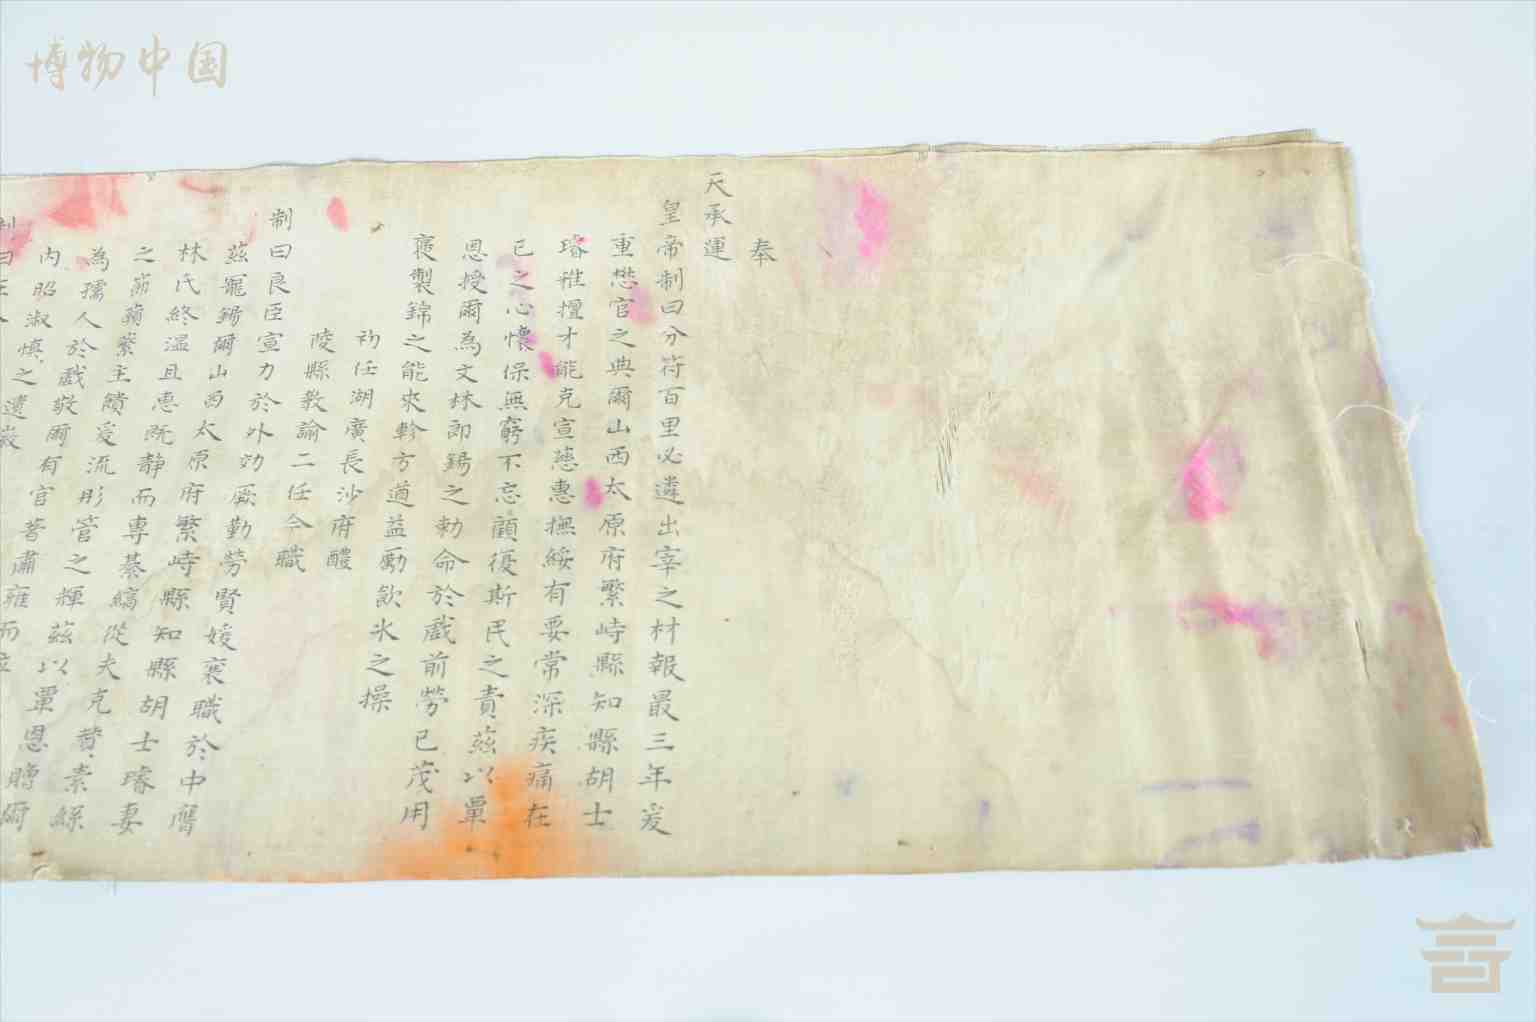 博物中国
奉
天承運
皇帝制曰分符百里必遴出宰之材報最三年爰
重懋官之典爾山西太原府繁峙縣知縣胡士
璿雅擅才能克宣慈惠撫綏有要常深疾痛在
已之心懷保無窮不忘顧復斯民之責茲以覃
恩授爾為文林郎錫之勅命於戲前勞已茂用
褒製錦之能來軫方遒益勵飲氷之操
初任湖廣長沙府醴
陵縣教諭二任今職
制曰良臣宣力於外効厥勤勞賢媛襄職於中膺
茲寵錫爾山西太原府繁峙縣知縣胡士璿妻
林氏終溫且惠既静而専綦縞從夫克賛素絲
之節蘋蘩主饋爰流彤管之輝茲以覃恩贈爾
為孺人於戲敬爾有官著肅雍而
内昭淑慎之遺徽
制曰